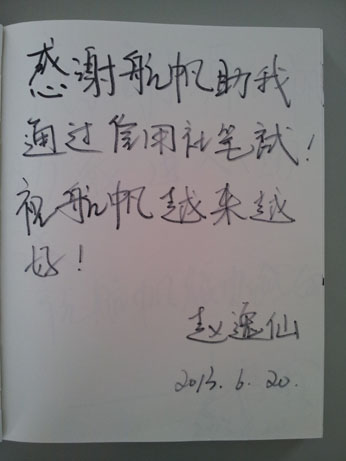 感谢航帆助我
通过信用社笔试！
祝航帆越来越
好！
赵逸仙
2013.6.20.